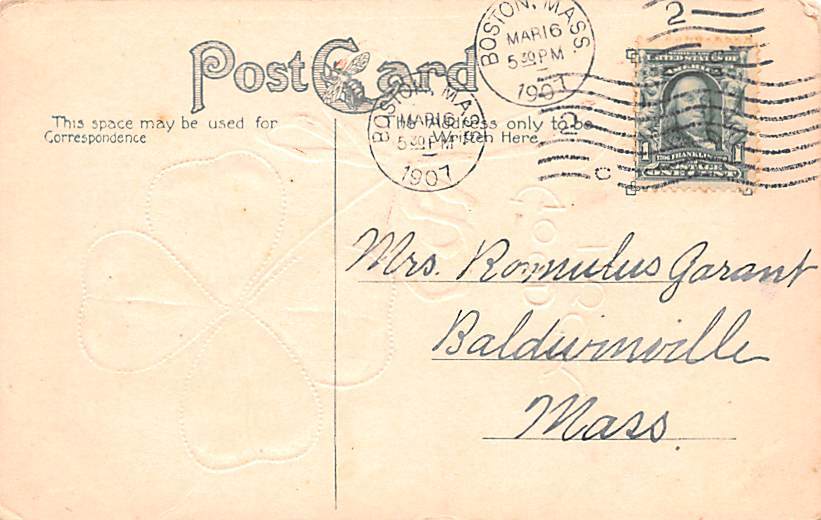 Post Card
This space may be used for
Correspondence
The Address only to be
Written Here
BOSTON, MASS
MAR 16
5 30 PM
1907
BOSTON, MASS
MAR 16
5 30 PM
1907
2
UNITED STATES OF
AMERICA
FRANKLIN
1 POSTAGE 1
ONE CENT
Mrs. Romulus Garant
Baldwinville
Mass.